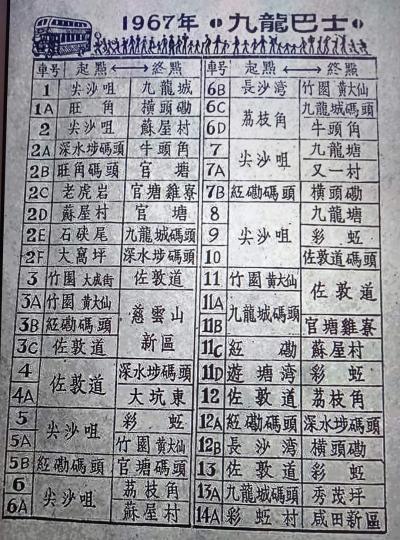 1967年 九龍巴士
車号 起點 ⟷ 終點
1 尖沙咀 九龍城
1A 旺角 橫頭磡
2 尖沙咀 蘇屋村
2A 深水埗碼頭 牛頭角
2B 旺角碼頭 官塘
2C 老虎岩 官塘雞寮
2D 蘇屋村 官塘
2E 石硤尾 九龍城碼頭
2F 大窩坪 深水埗碼頭
3 竹園 大成街 佐敦道
3A 竹園 黃大仙 慈雲山
3B 紅磡碼頭
3C 佐敦道 新區
4 佐敦道 深水埗碼頭
4A 大坑東
5 尖沙咀 彩虹
5A 竹園 黃大仙
5B 紅磡碼頭 官塘碼頭
6 尖沙咀 荔枝角
6A 蘇屋村
車号 起點 ⟷ 終點
6B 長沙湾 竹園 黃大仙
6C 荔枝角 九龍城碼頭
6D 牛頭角
7 尖沙咀 九龍塘
7A 又一村
7B 紅磡碼頭 橫頭磡
8 九龍塘
9 尖沙咀 彩虹
10 佐敦道碼頭
11 竹園 黃大仙 佐敦道
11A 九龍城碼頭
11B 官塘雞寮
11C 紅磡 蘇屋村
11D 遊塘湾 彩虹
12 佐敦道 荔枝角
12A 紅磡碼頭 深水埗碼頭
12B 長沙湾 橫頭磡
13 佐敦道 彩虹
13A 九龍城碼頭 秀茂坪
14A 彩虹村 咸田新區